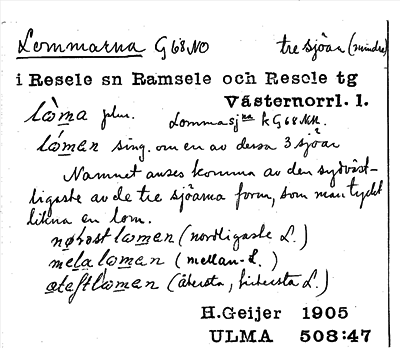 Lommarna G 68 NO tre sjöar (mindre)
i Resele sn Ramsele och Resele tg
Västernorrl. l.
lo̱ma plur. Lommasjna k G 68 NO.
lo̱men sing. om en av dessa 3 sjöar
Namnet anses komma av den sydväst-
ligaste av de tre sjöarna form, som man tyckt
likna en lom.
nørəst lomen (nordligaste L.)
mela lomen (mellan-L.)
(återsta, bichersta L.)
H.Geijer 1905
ULMA 508:47